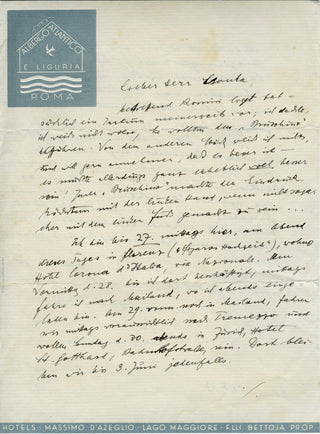 ALBERGO ATLANTICO
E LIGURIA
ROMA
Lieber Herr
betreffend Rossini liegt tat-
sächlich ein Irrtum meinerseits vor; ich dachte,
ich weiss nicht wieso, Sie wollten den "Bruschino"
aufführen. Von dem anderen Stück weiss ich nichts,
will gern annehmen, dass es besser ist —
es müsste allerdings ganz erheblich viel besser
sein! Denn "Bruschino" machte den Eindruck
mit der linken Hand, wenn nicht sogar
eher mit dem linken Fuss gemacht zu sein ...
Ich bin bis 27. mittags hier, am Abend
dieses Tages in Florenz ("Figaros Hochzeit"), wohne
Hotel Corona d'Italia, via Nazionale. Am
Vormittag d. 28. bin ich dort beschäftigt, mittags
fahre ich nach Mailand, wo ich abends
bin. Am 29. vorm. noch in Mailand, fahren
wir mittags voraussichtlich nach Tremezzo und
wollen Sonntag d. 30. abends in Zürich, Hotel
St. Gotthard, Bahnhofstraße, sein. Dort blei-
ben wir bis 3. Juni jedenfalls.
HOTELS: MASSIMO D'AZEGLIO - LAGO MAGGIORE - F.LLI BETTOJA PROP.